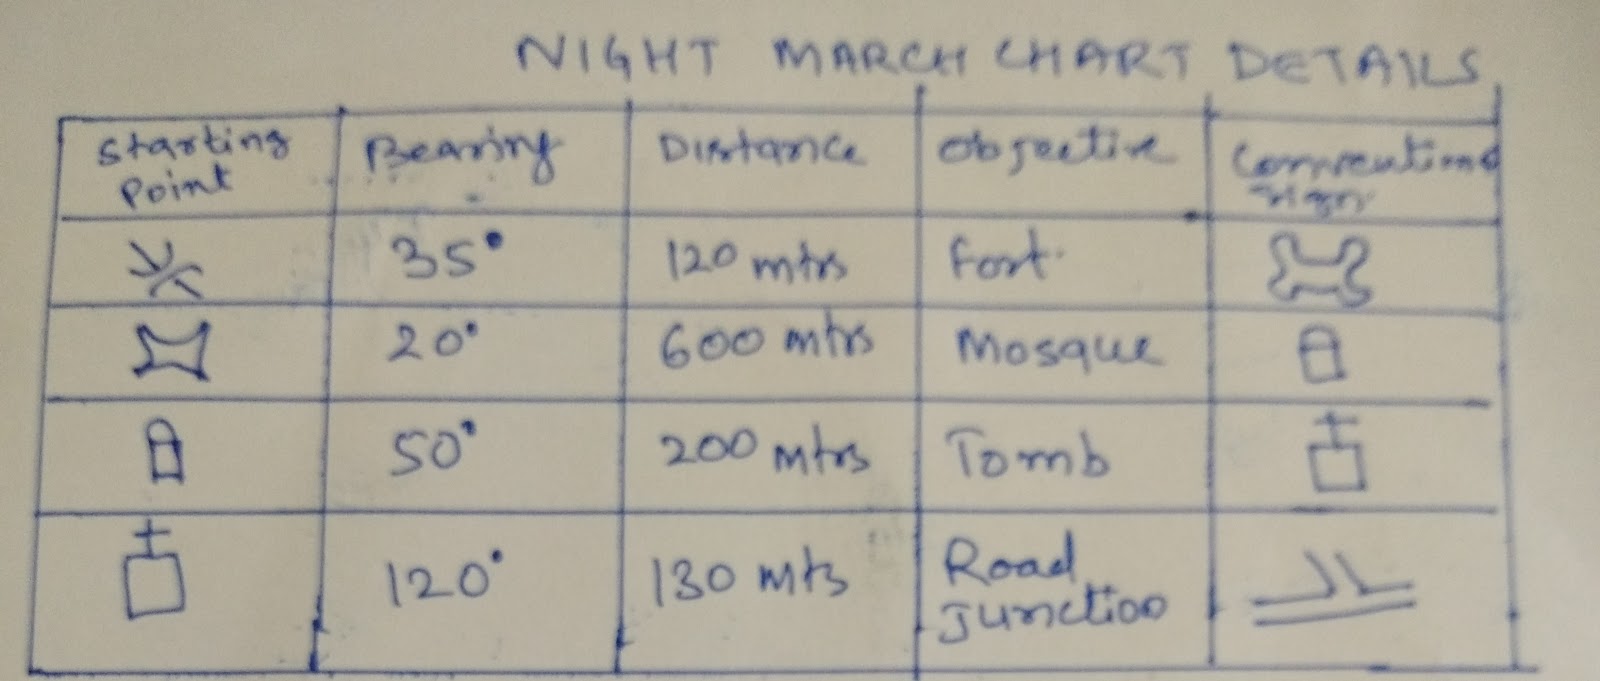 NIGHT MARCH CHART DETAILS
Starting Point Bearing Distance Objective Conventional sign
35° 120 mtrs Fort.
20° 600 mtrs Mosque
50° 200 mtrs Tomb
120° 130 mts Road Junction